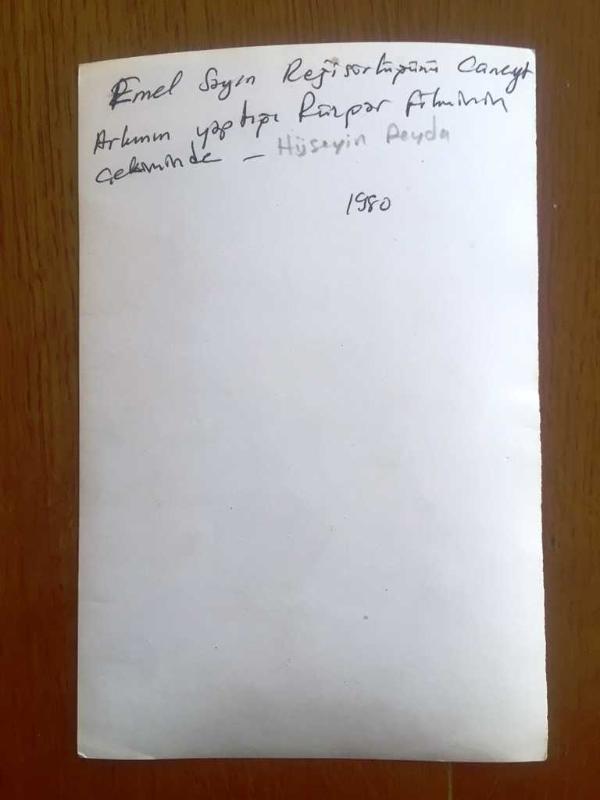 Emel Sayın Rejisörlüğünü Cüneyt
Arkının yaptığı Rüzgar filminin
çekiminde - Hüseyin Peyda
1980